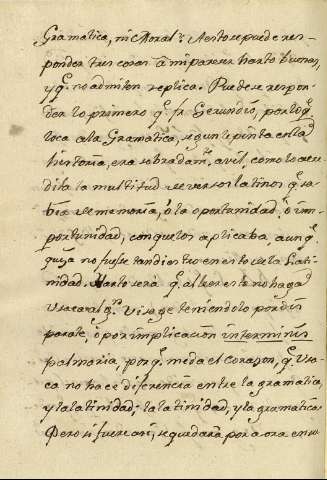 Gramatica, ni Moral? A esto se puede res-
ponder tres cosas à mi parecer harto buenas,
y q.e no admiten replica. Puedese respon-
der lo primero q.e fr. Gerundio, por lo q.e
toca a la Gramatica, segun le pinta en la
historia, era sobradam.te avil, como lo acre-
dita la multitud de versos latinos q.e sa-
bia de memoria, ò la oportunidad, ò im-
portunidad, con que los aplicaba, aunq.e
quiza no fuese tan diestro en esto de la Lati-
nidad. Harto será q.e al leer esto no haga
Usaca algun visage teniendolo por dis-
parate, ò por implicacion in terminis
palmaria, porq.e me da el corazon, q.e Usa-
ca no hace diferencia entre la gramatica,
y la latinidad; la latinidad, y la gramatica.
Pero si fuere asi, se quedará por aora en su